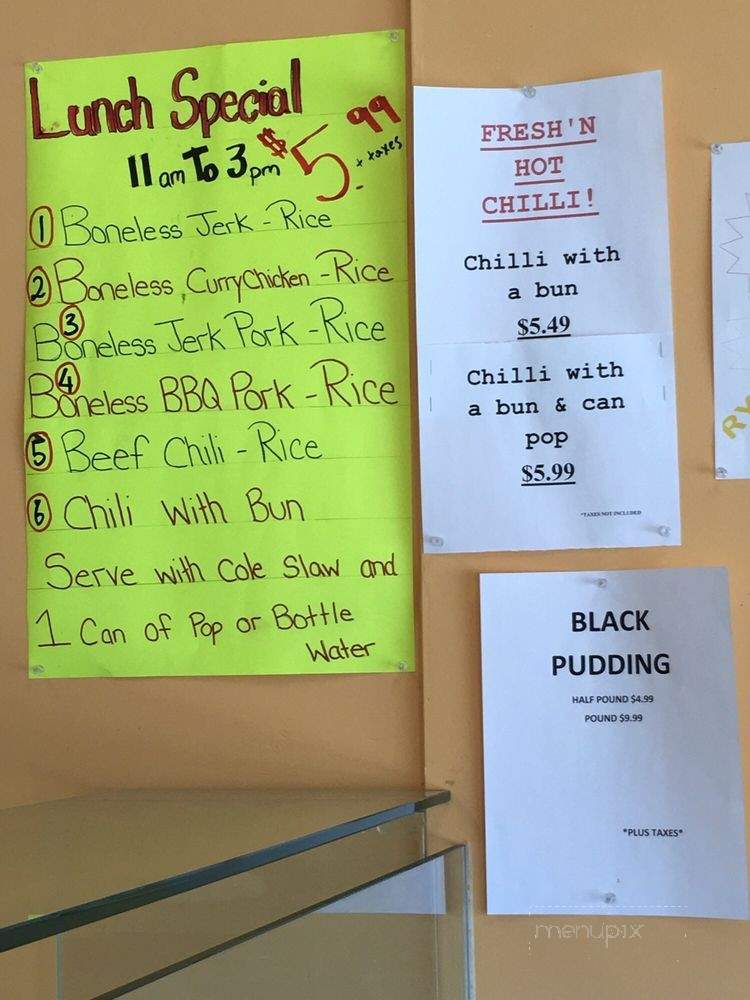 Lunch Special
11 am To 3 pm $5.99 + taxes
1 Boneless Jerk - Rice
2 Boneless Curry Chicken - Rice
3 Boneless Jerk Pork - Rice
4 Boneless BBQ Pork - Rice
5 Beef Chili - Rice
6 Chili With Bun
Serve with Cole Slaw and
1 Can of Pop or Bottle
Water
FRESH'N
HOT
CHILLI!
Chilli with
a bun
$5.49
Chilli with
a bun & can
pop
$5.99
*TAXES NOT INCLUDED
BLACK
PUDDING
HALF POUND $4.99
POUND $9.99
*PLUS TAXES*
RY
menupix